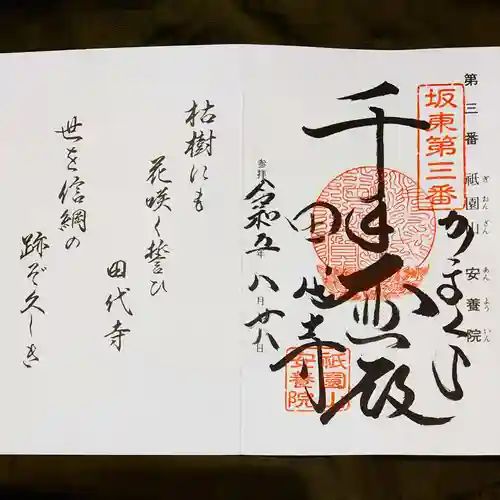 第三番 祇園山 安養院
ぎおんざん あんよういん
坂東第三番
かまくら
千手大悲殿
田代寺
参拝 令和五年八月廿八日
祇園山
安養院
枯樹にも
花咲く誓ひ
田代寺
世を信綱の
跡ぞ久しき